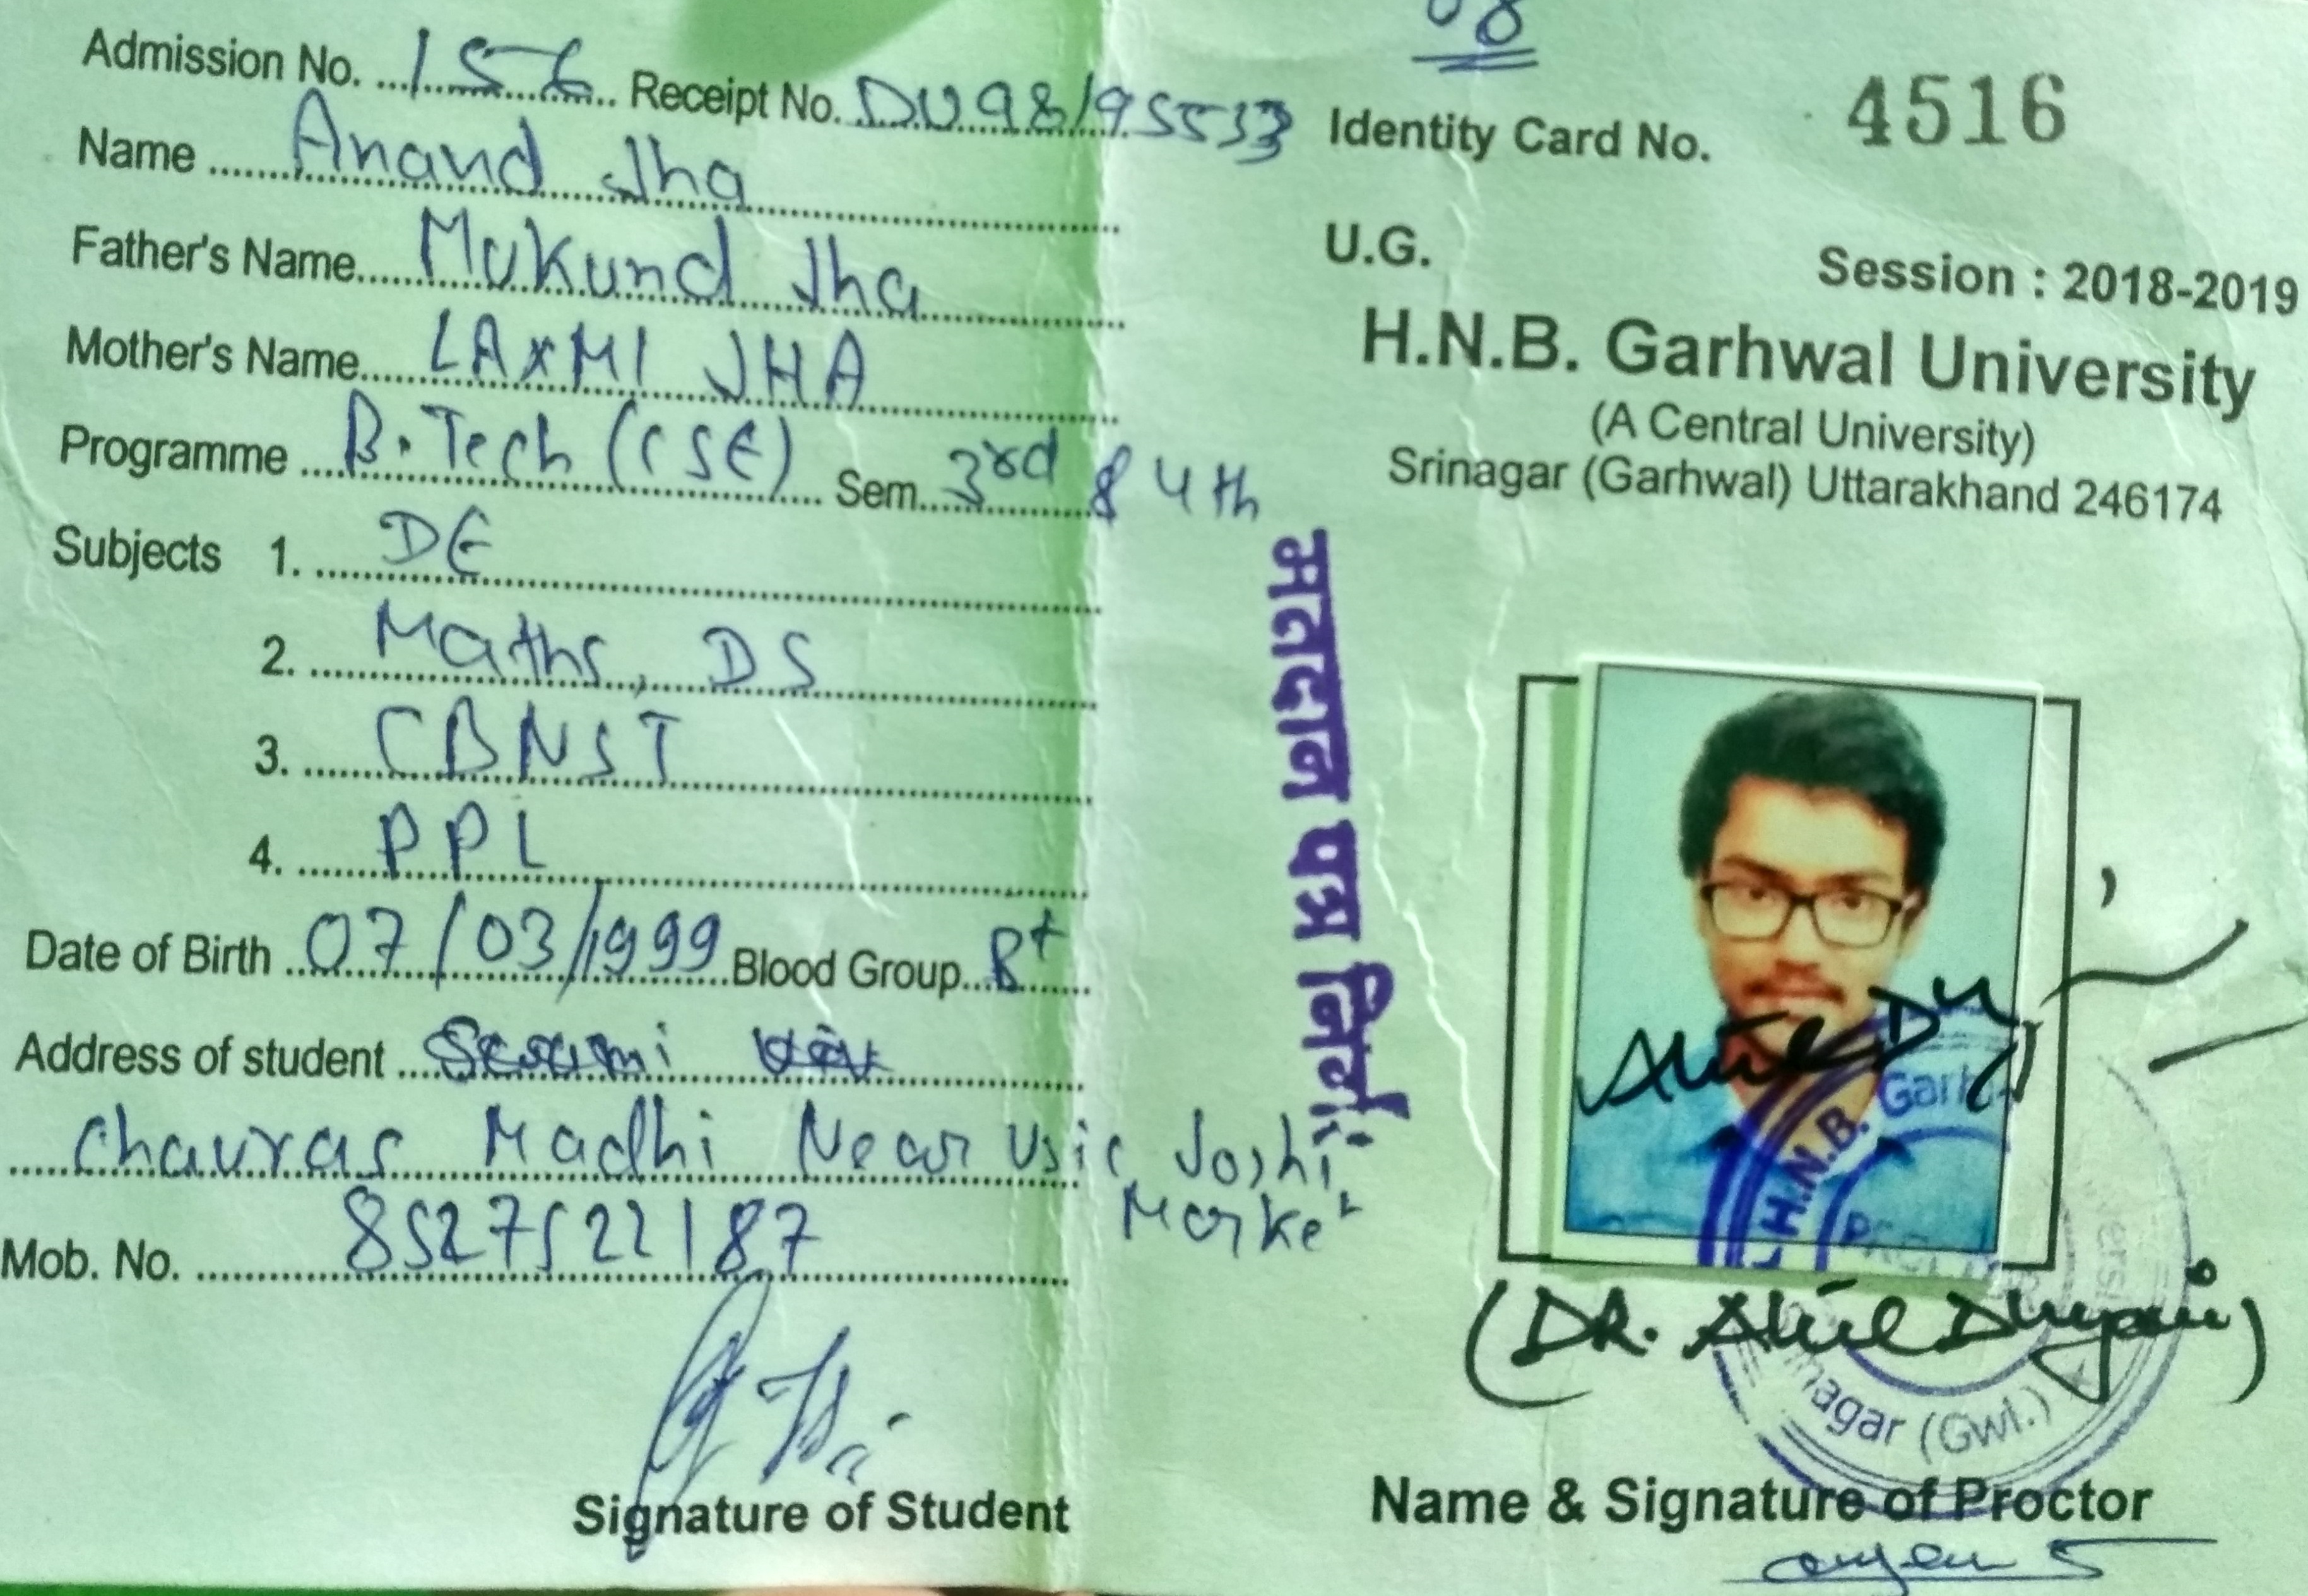 Admission No. 156 Receipt No. DU98/95533
Name Anand Jha
Father's Name Mukund Jha
Mother's Name LAXMI JHA
Programme B.Tech (CSE) Sem. 3rd & 4th
Subjects 1. DE
2. Maths, DS
3. CBNST
4. PPL
Date of Birth 07/03/1999 Blood Group B+
Address of student
Chauras Madhi Near Usic Joshi
Market
Mob. No. 8527522187
Signature of Student
08
Identity Card No. 4516
U.G. Session : 2018-2019
H.N.B. Garhwal University
(A Central University)
Srinagar (Garhwal) Uttarakhand 246174
मतदान पत्र निर्ग
H.N.B. Garh
nagar (Gwl.)
(DR. Dhyani)
Name & Signature of Proctor